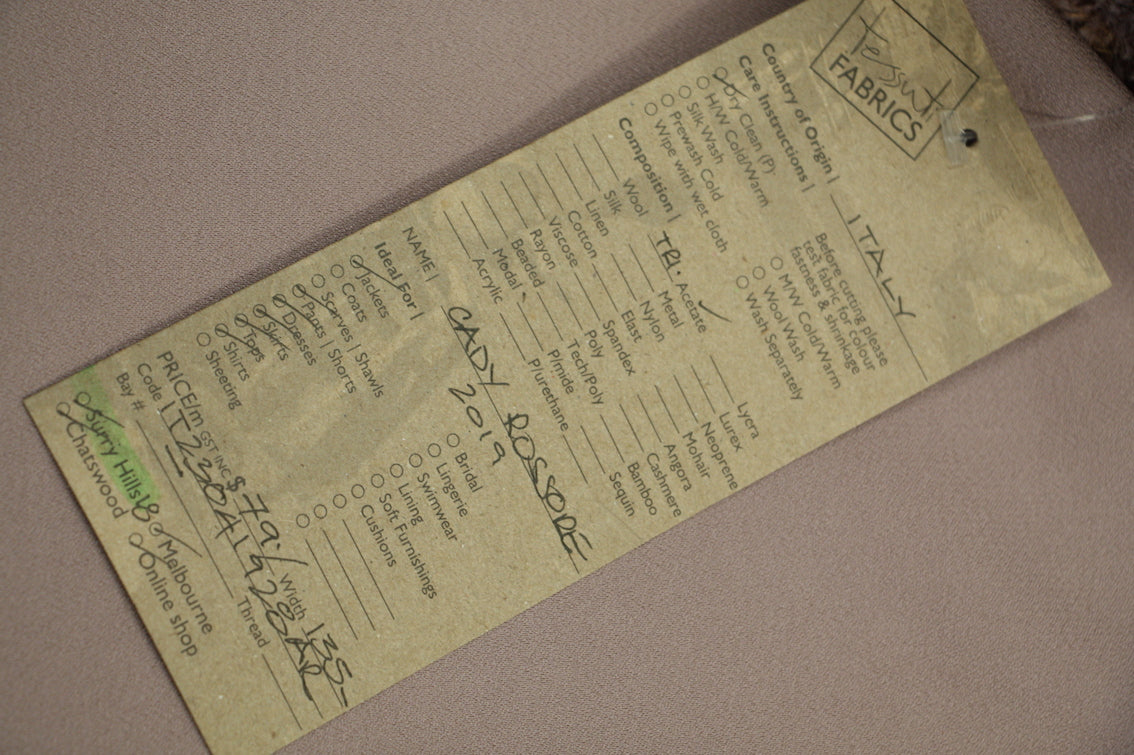 tessuti
FABRICS
Country of Origin | ITALY
Care Instructions |
Dry Clean (P)
H/W Cold/Warm
Silk Wash
Prewash Cold
Wipe with wet cloth
Before cutting please
test fabric for colour
fastness & shrinkage
M/W Cold/Warm
Wool Wash
Wash Separately
Composition |
Wool TRI. Acetate ✓ Lycra
Silk Metal Lurex
Linen Nylon Neoprene
Cotton Elast Mohair
Viscose Spandex Angora
Rayon Poly Cashmere
Beaded Tech/Poly Bamboo
Modal P/mide Sequin
Acrylic P/urethane
NAME | CADY ROSSORE
2019
Ideal For |
Jackets
Coats
Scarves | Shawls
Pants | Shorts
Dresses
Skirts
Tops
Shirts
Sheeting
Bridal
Lingerie
Swimwear
Lining
Soft Furnishings
Cushions
PRICE/m GST INC $79.- Width 135-
Code
Bay # Thread
Surry Hills Melbourne
Chatswood Online shop